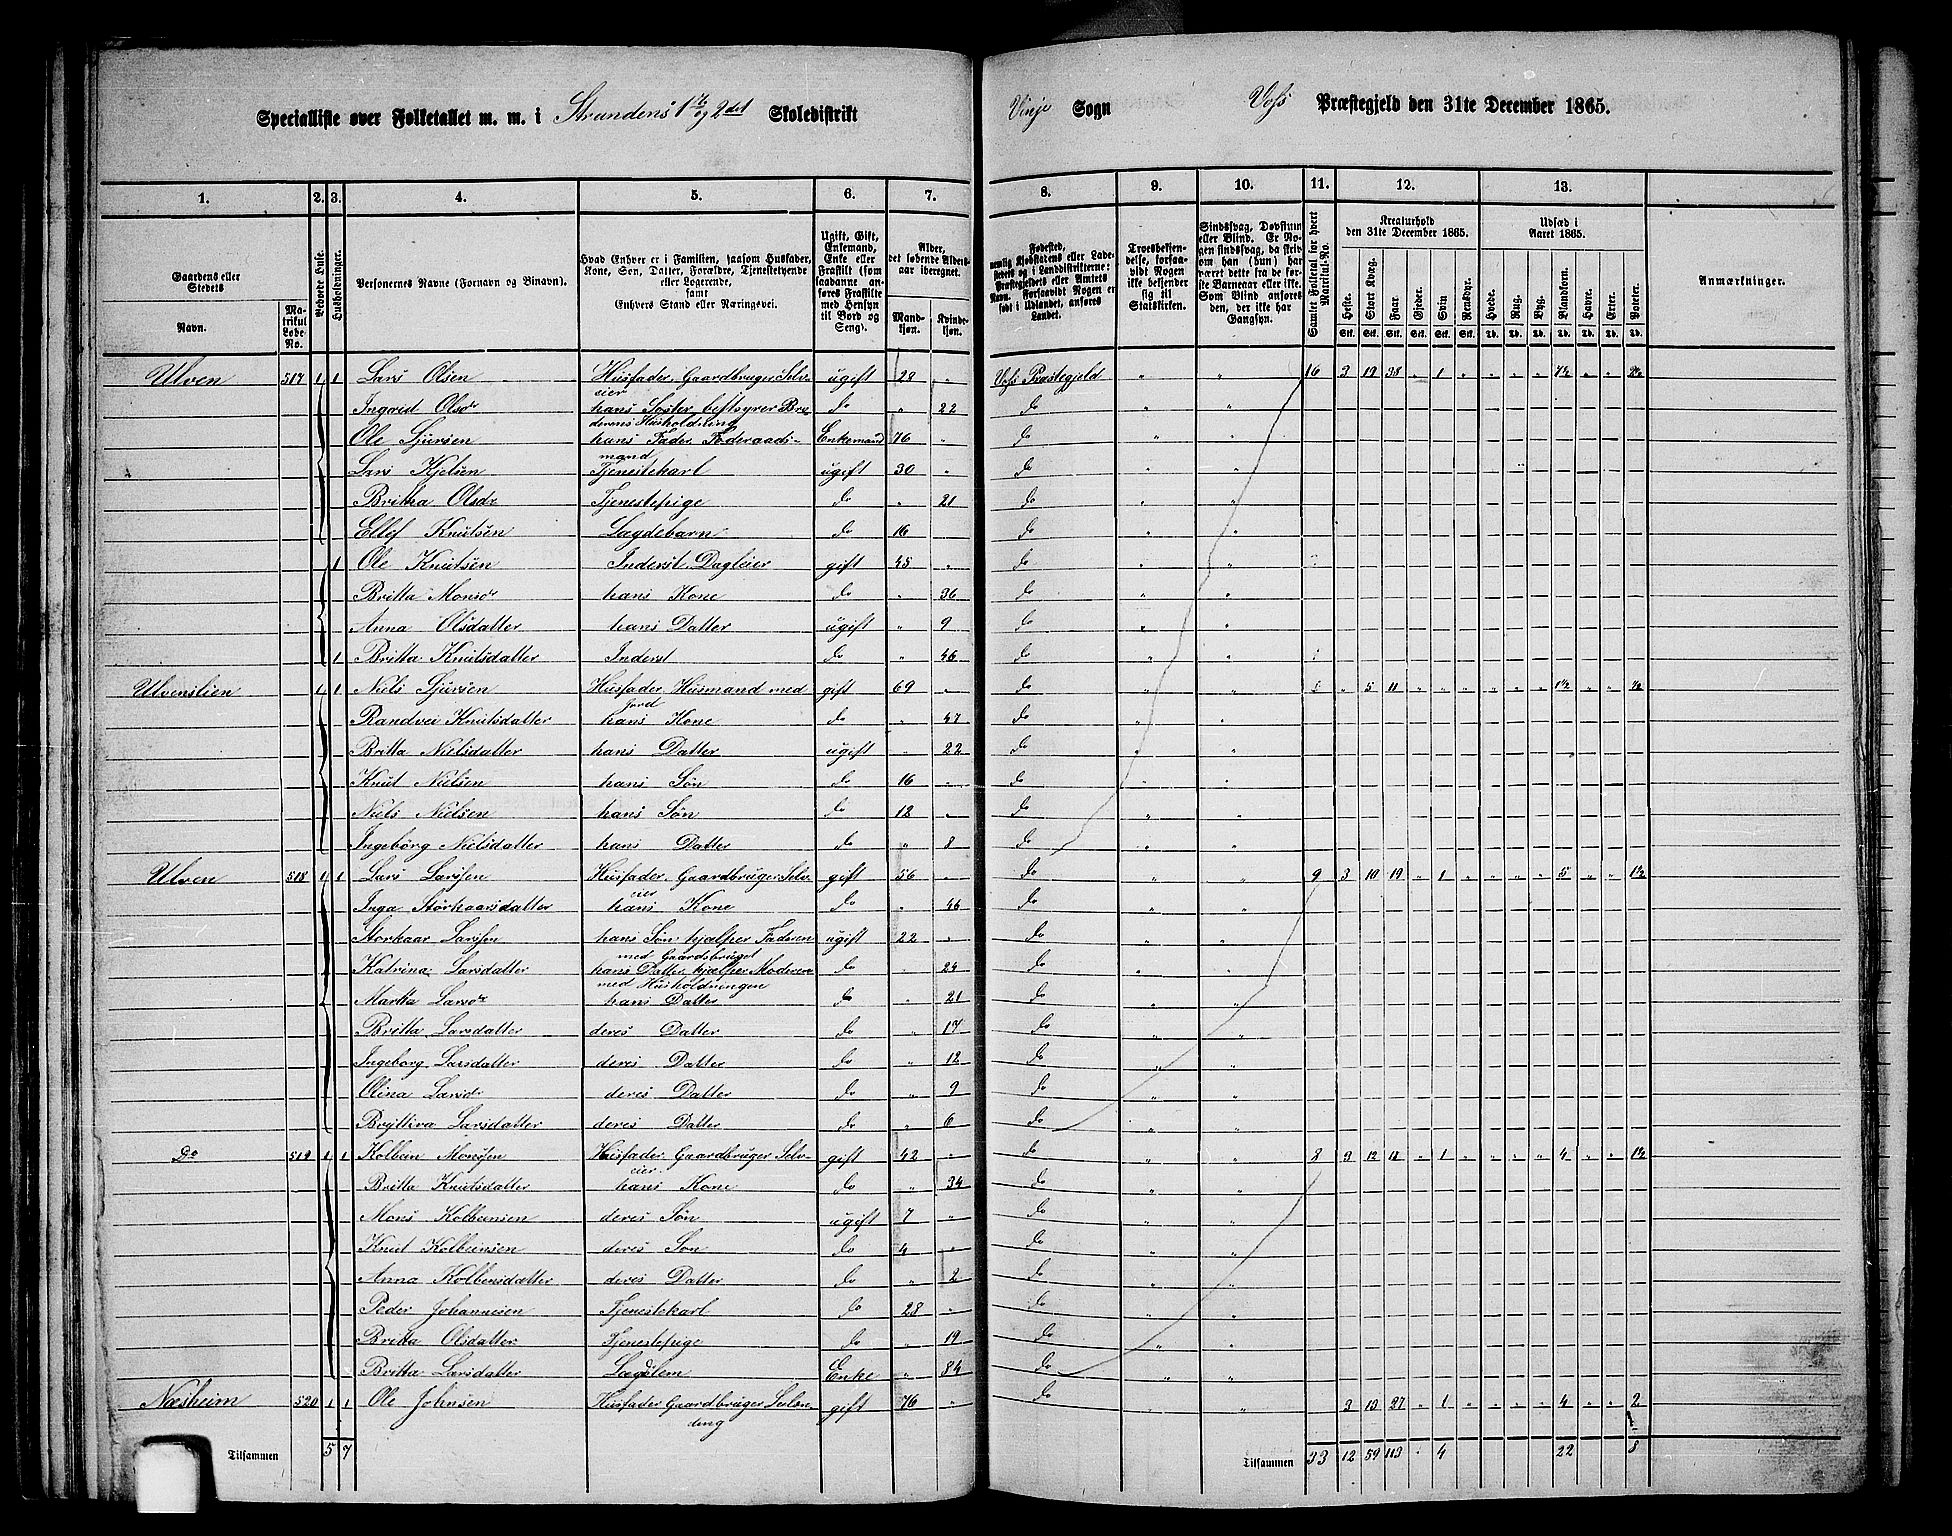 Specialliste over Folketallet m. m. i Strandens 1ste og 2det Skoledistrikt Vinje Sogn Voss Præstegjeld den 31te December 1865.
1. 2. 3. 4. 5. 6. 7. 8. 9. 10. 11. 12. 13.
Gaardens eller Stedets Navn. Matrikul Løbe-No. Beboede Huse. Husholdninger. Personernes Navne (Fornavn og Binavn). Hvad Enhver er i Familien, saasom Husfader, Kone, Søn, Datter, Forældre, Tjenestetyende eller Logerende, samt Enhvers Stand eller Næringsvei. Ugift, Gift, Enkemand, Enke eller Fraskilt (som saadanne anføres Fraskilte med Hensyn til Bord og Seng). Alder, det løbende Aldersaar iberegnet. Mandkjøn. Kvindekjøn. Fødested, nemlig Kjøbstadens eller Ladestedets og i Landdistrikterne: Præstegjeldets eller Amtets Navn. Forsaavidt Nogen er født i Udlandet, anføres Landet. Troesbekjendelse, forsaavidt Nogen ikke bekjender sig til Statskirken. Sindssvag, Døvstum eller Blind. Er Nogen sindssvag, da skriv om han (hun) har været dette fra de første Barneaar eller ikke. Som Blind anføres den, der ikke har Gangsyn. Samlet Folketal for hvert Matrikul-No. Kreaturhold den 31te December 1865. Heste. Stort Kvæg. Faar. Gjeder. Svin Rensdyr. Udsæd i Aaret 1865. Hvede. Rug. Byg. Blandkorn. Havre. Erter. Poteter. Anmærkninger.
Ulven 517 1 1 Lars Olsen Husfader. Gaardbruger Selveier ugift 28 " Voss Præstegjeld " " 16 3 19 38 " 1 " " " " 7½ " " 2½
Ingrid Olsdr hans Søster, bestyrer Broderens Husholdning do " 22 do " "
Ole Sjursen hans Fader Føderaadsmand Enkemand 76 " do " "
Lars Kjelsen Tjenestekarl ugift 30 " do " "
Britha Olsdr Tjenestepige do " 21 do " "
Ellef Knutsen Lægdebarn do 16 do " "
1 Ole Knutsen Inderst. Dagleier gift 45 " do " "
Britta Monsdr hans Kone do " 36 do " "
Anna Olsdatter hans Datter ugift " 9 do " "
1 Britta Knutsdatter Inderst do " 46 do " "
Ulvenslien 1 1 Niels Sjursen Husfader Husmand med Jord gift 69 " do " " " 5 11 " " " " " " 1½ " " ½
Randvei Knutsdatter hans Kone do " 47 do " "
Britta Nielsdatter hans Datter ugift " 22 do " "
Knut Nielsen hans Søn do 16 " do " "
Niels Nielsen hans Søn do 12 " do " "
Ingebörg Nielsdatter hans Datter do " 8 do " "
Ulven 518 1 1 Lars Larssen Husfader. Gaardbruger Selveier gift 56 " do " " 9 3 10 19 " 1 " " " " 5 " " 1½
Inga Storkaarsdatter hans Kone do " 46 do " "
Storkaar Larssen hans Søn. hjælper Faderen med Gaardsbruget ugift 22 " do " "
Katrina Larsdatter hans Datter hjælper Moderen med Husholdningen do " 24 do " "
Martha Larsdr hans Datter do " 21 do " "
Britta Larsdatter deres Datter do " 17 do " "
Ingeborg Larsdatter deres Datter do " 12 do " "
Olina Larsdr deres Datter do " 9 do " "
Bryttiva Larsdatter deres Datter do " 6 do " "
Do 519 1 1 Kolbein Monsen Husfader Gaardbruger Selveier gift 42 " do " " 8 3 12 18 " 1 " " " " 4 " " 1½
Britta Knutsdatter hans Kone do " 34 do " "
Mons Kolbeinsen deres Søn ugift 7 " do " "
Knut Kolbeinsen deres Søn do 4 " do " "
Anna Kolbensdatter deres Datter do " 2 do " "
Peder Johannesen Tjenestekarl do 28 " do " "
Britta Olsdatter Tjenestepige do " 19 do " "
Britta Larsdatter Lægdslem Enke " 84 do " "
Næsheim 520 1 1 Ole Johnsen Husfader Gaardbruger gift 76 " do " " 3 13 27 " 1 " " " " 4 " " 2
Tilsammen 5 7 Tilsammen 33 12 59 113 " 4 22 8